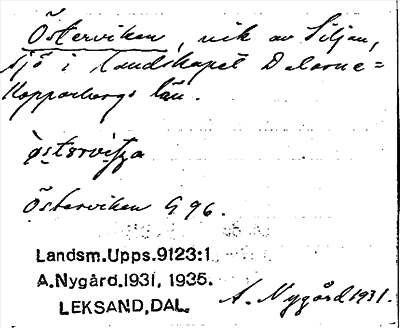 Österviken, vik av Siljan,
sjö i landskapet Dalarne =
Kopparbergs län.
Österviken G 96.
Landsm.Upps.9123:1
A.Nygård.1931, 1935.
LEKSAND, DAL.
A. Nygård 1931.